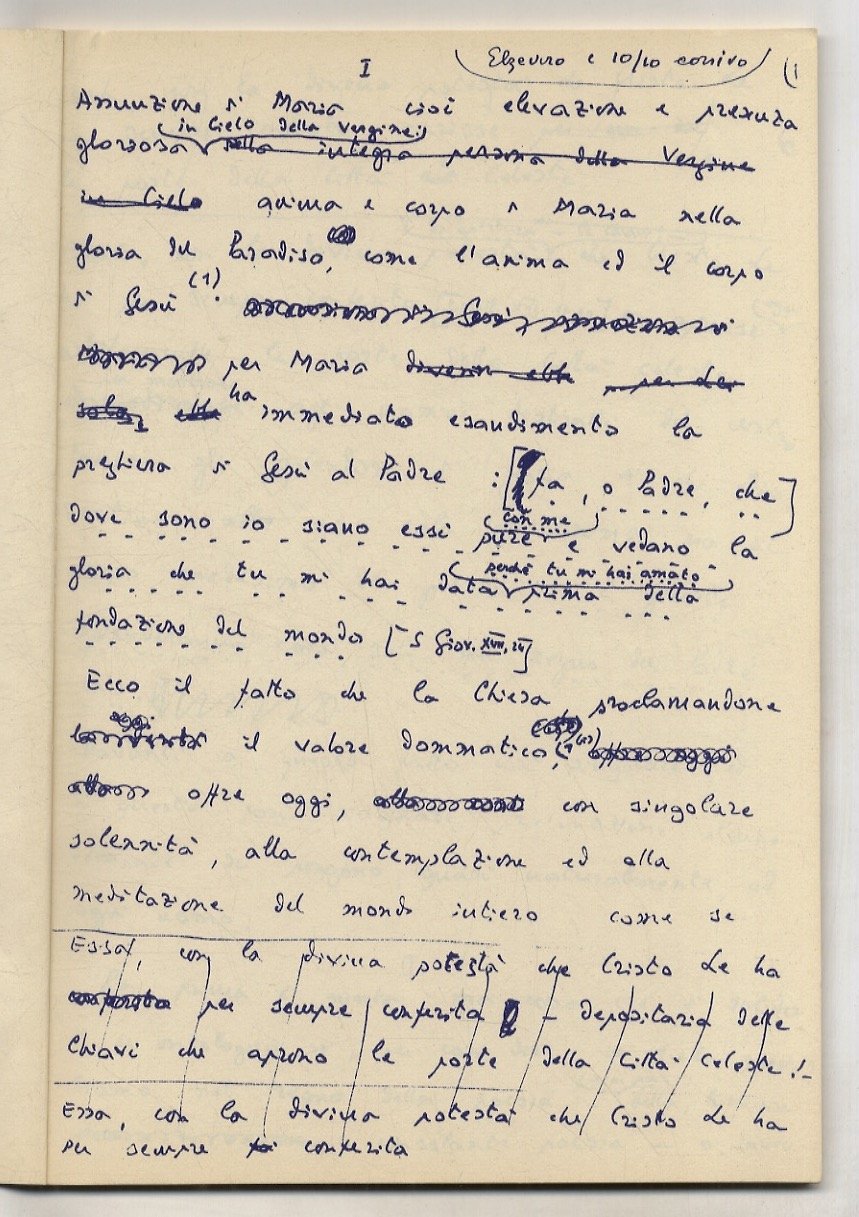 I
Elzeviro c 10/10 corsivo
(1
Assunzione di Maria cioè elevazione e presenza
in Cielo della Vergine:
gloriosa della integra persona della Vergine
in Cielo anima e corpo di Maria nella
gloria del Paradiso, come l'anima ed il corpo
di Gesù (1).
per Maria
sola, ha immediato esaudimento la
preghiera di Gesù al Padre : [fa, o Padre, che]
dove sono io siano essi pure e vedano la
con me
gloria che tu mi hai data prima della
perché tu mi hai amato
fondazione del mondo [S Giov. XVII, 24]
Ecco il fatto che la Chiesa, proclamandone
oggi
il valore dommatico,
offre oggi, con singolare
solennità, alla contemplazione ed alla
meditazione del mondo intiero come se
Essa, con la divina potestà che Cristo Le ha
per sempre conferita - depositaria delle
Chiavi che aprono le porte della Città Celeste! -
Essa, con la divina potestà che Cristo Le ha
per sempre conferita